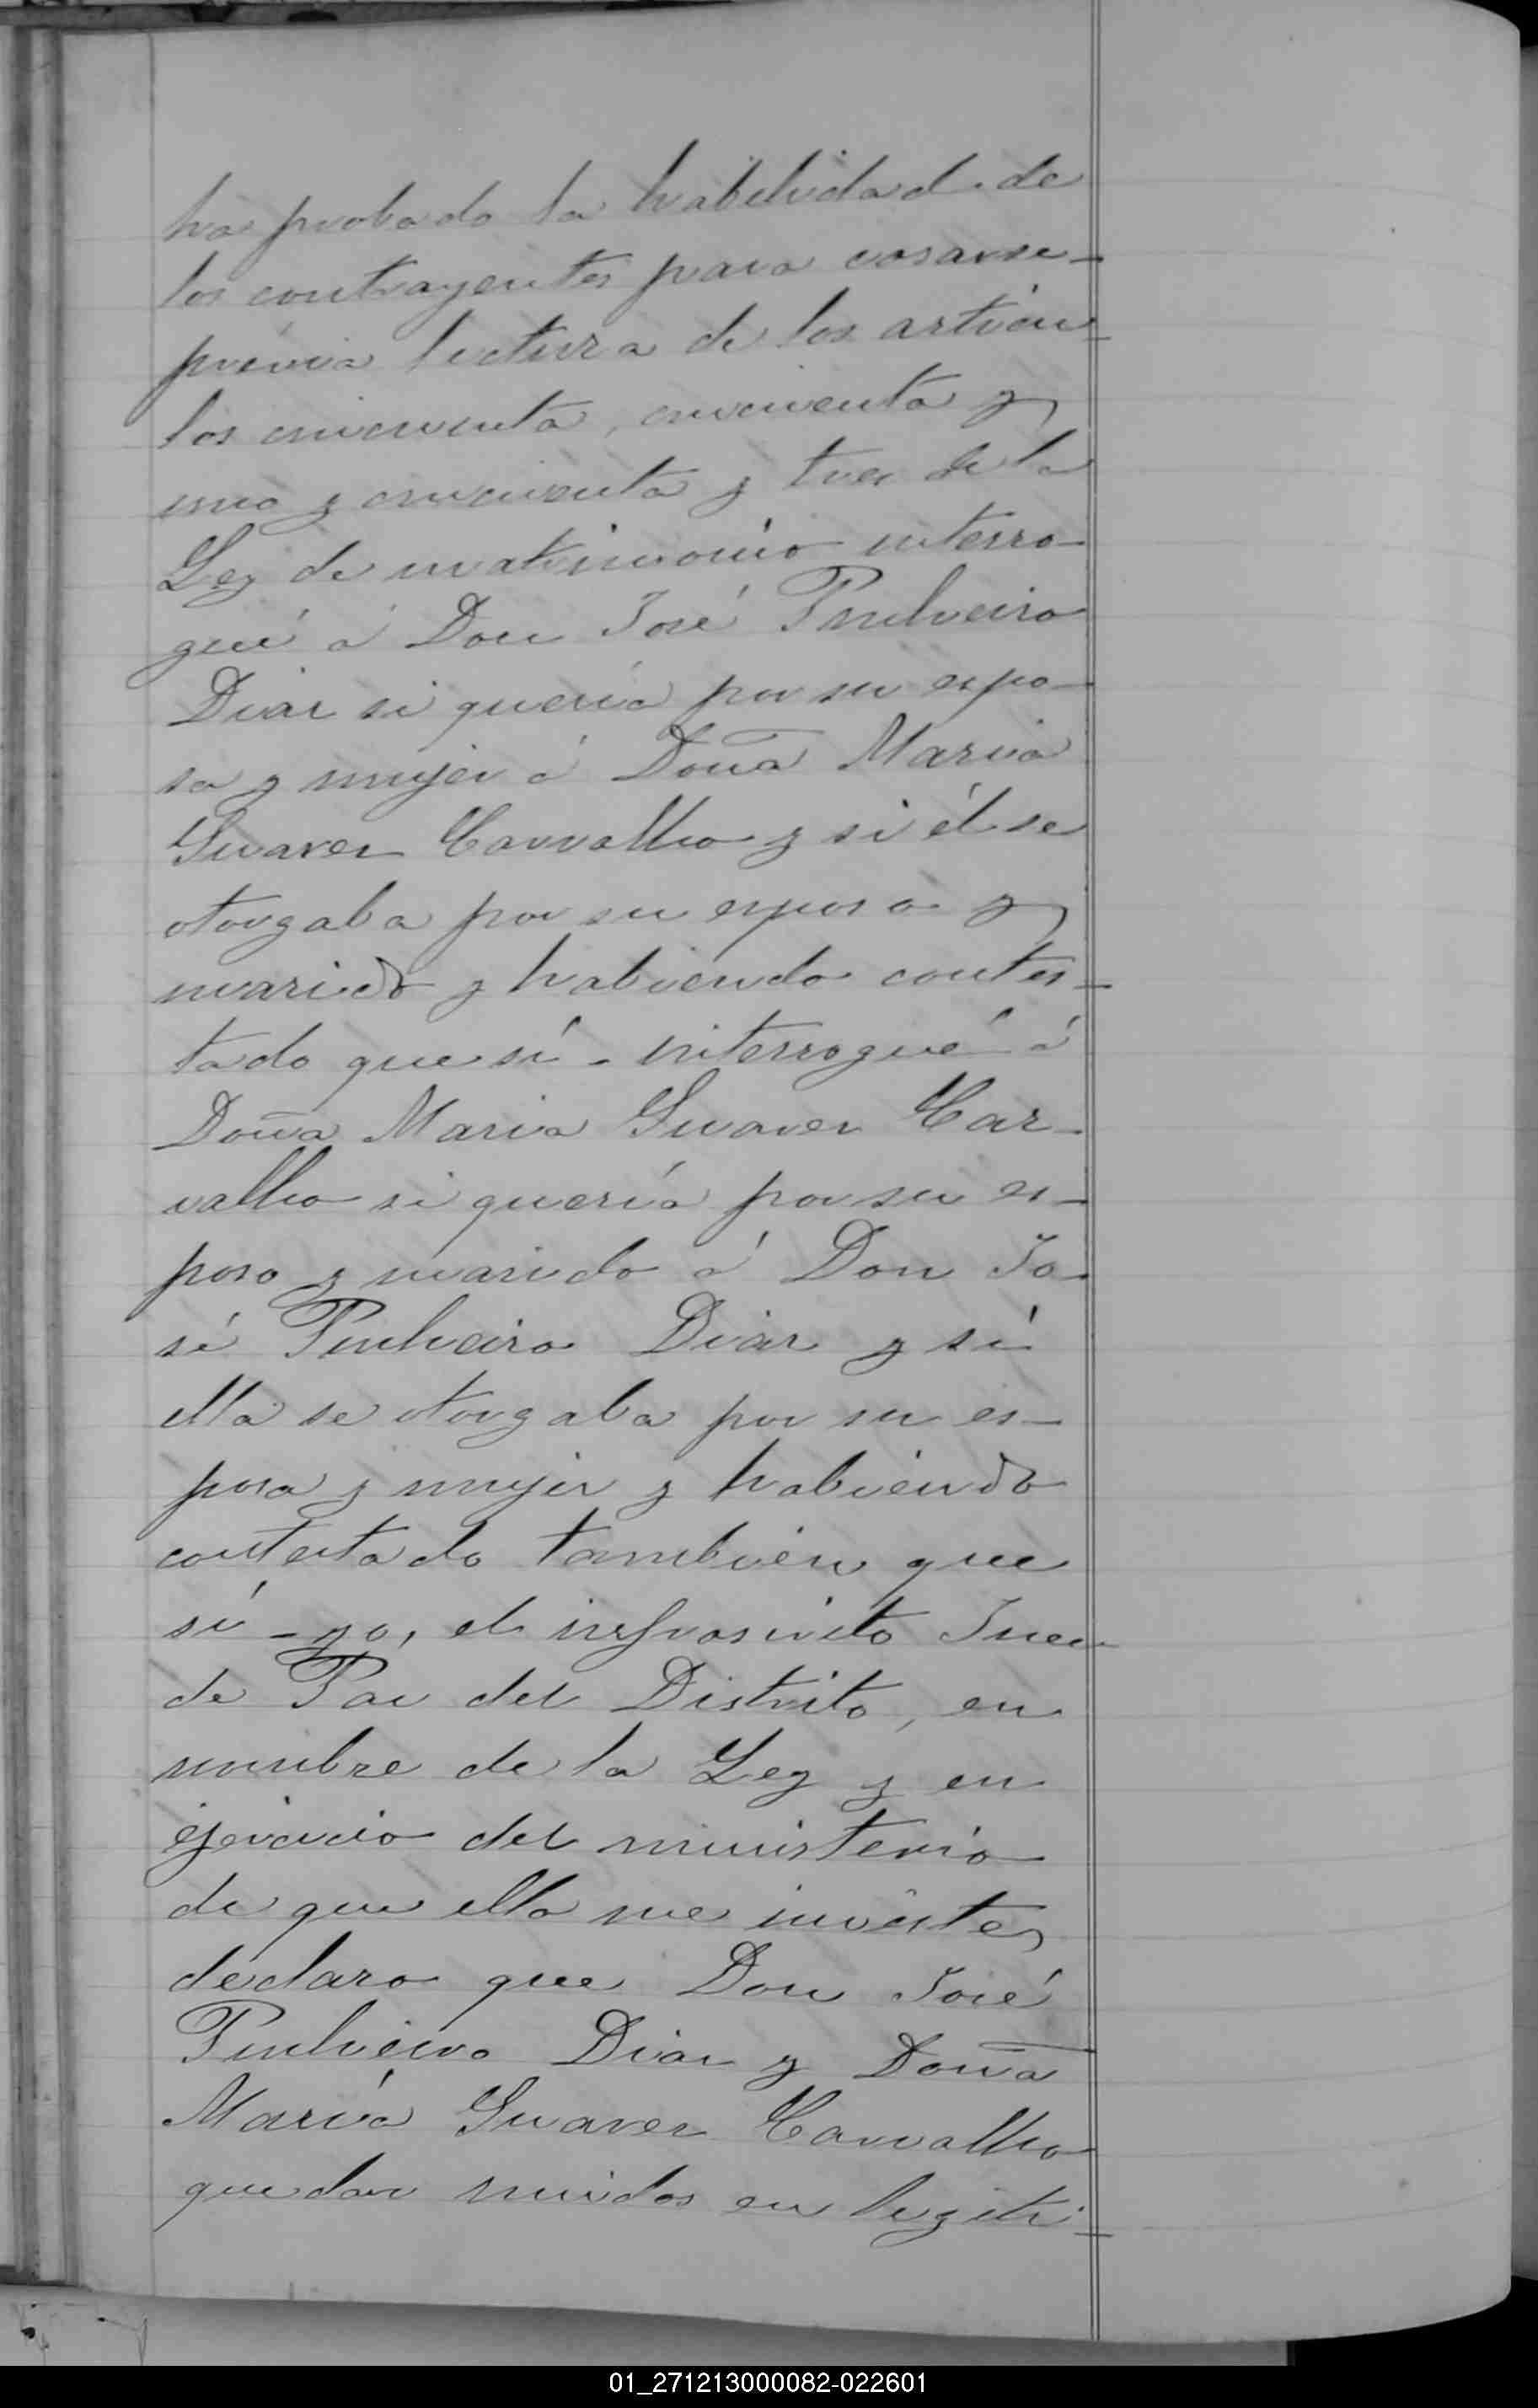 ha probado la habilidad de
los contrayentes para casarse-
prévia lectura de los articu-
los cincuenta, cincuenta y
uno y cincuenta y tres de la
Ley de matrimonio interro-
gué á Don José Pinheiro
Diaz si quería por su espo-
sa y mujer á Doña Maria
Suarez Carvalho y si él se
otorgaba por su esposo y
marido y habiendo contes-
tado que sí - interrogué á
Doña Maria Suarez Car-
valho si quería por su es-
poso y marido á Don Jo-
sé Pinheiro Diaz y si
ella se otorgaba por su es-
posa y mujer y habiendo
contestado tambien que
sí - yo, el infrascrito Juez
de Paz del Distrito, en
nombre de la Ley y en
ejercicio del ministerio
de que ella me inviste,
declaro que Don José
Pinheiro Diaz y Doña
María Suarez Carvalho
quedan unidos en legiti-
01_271213000082-022601